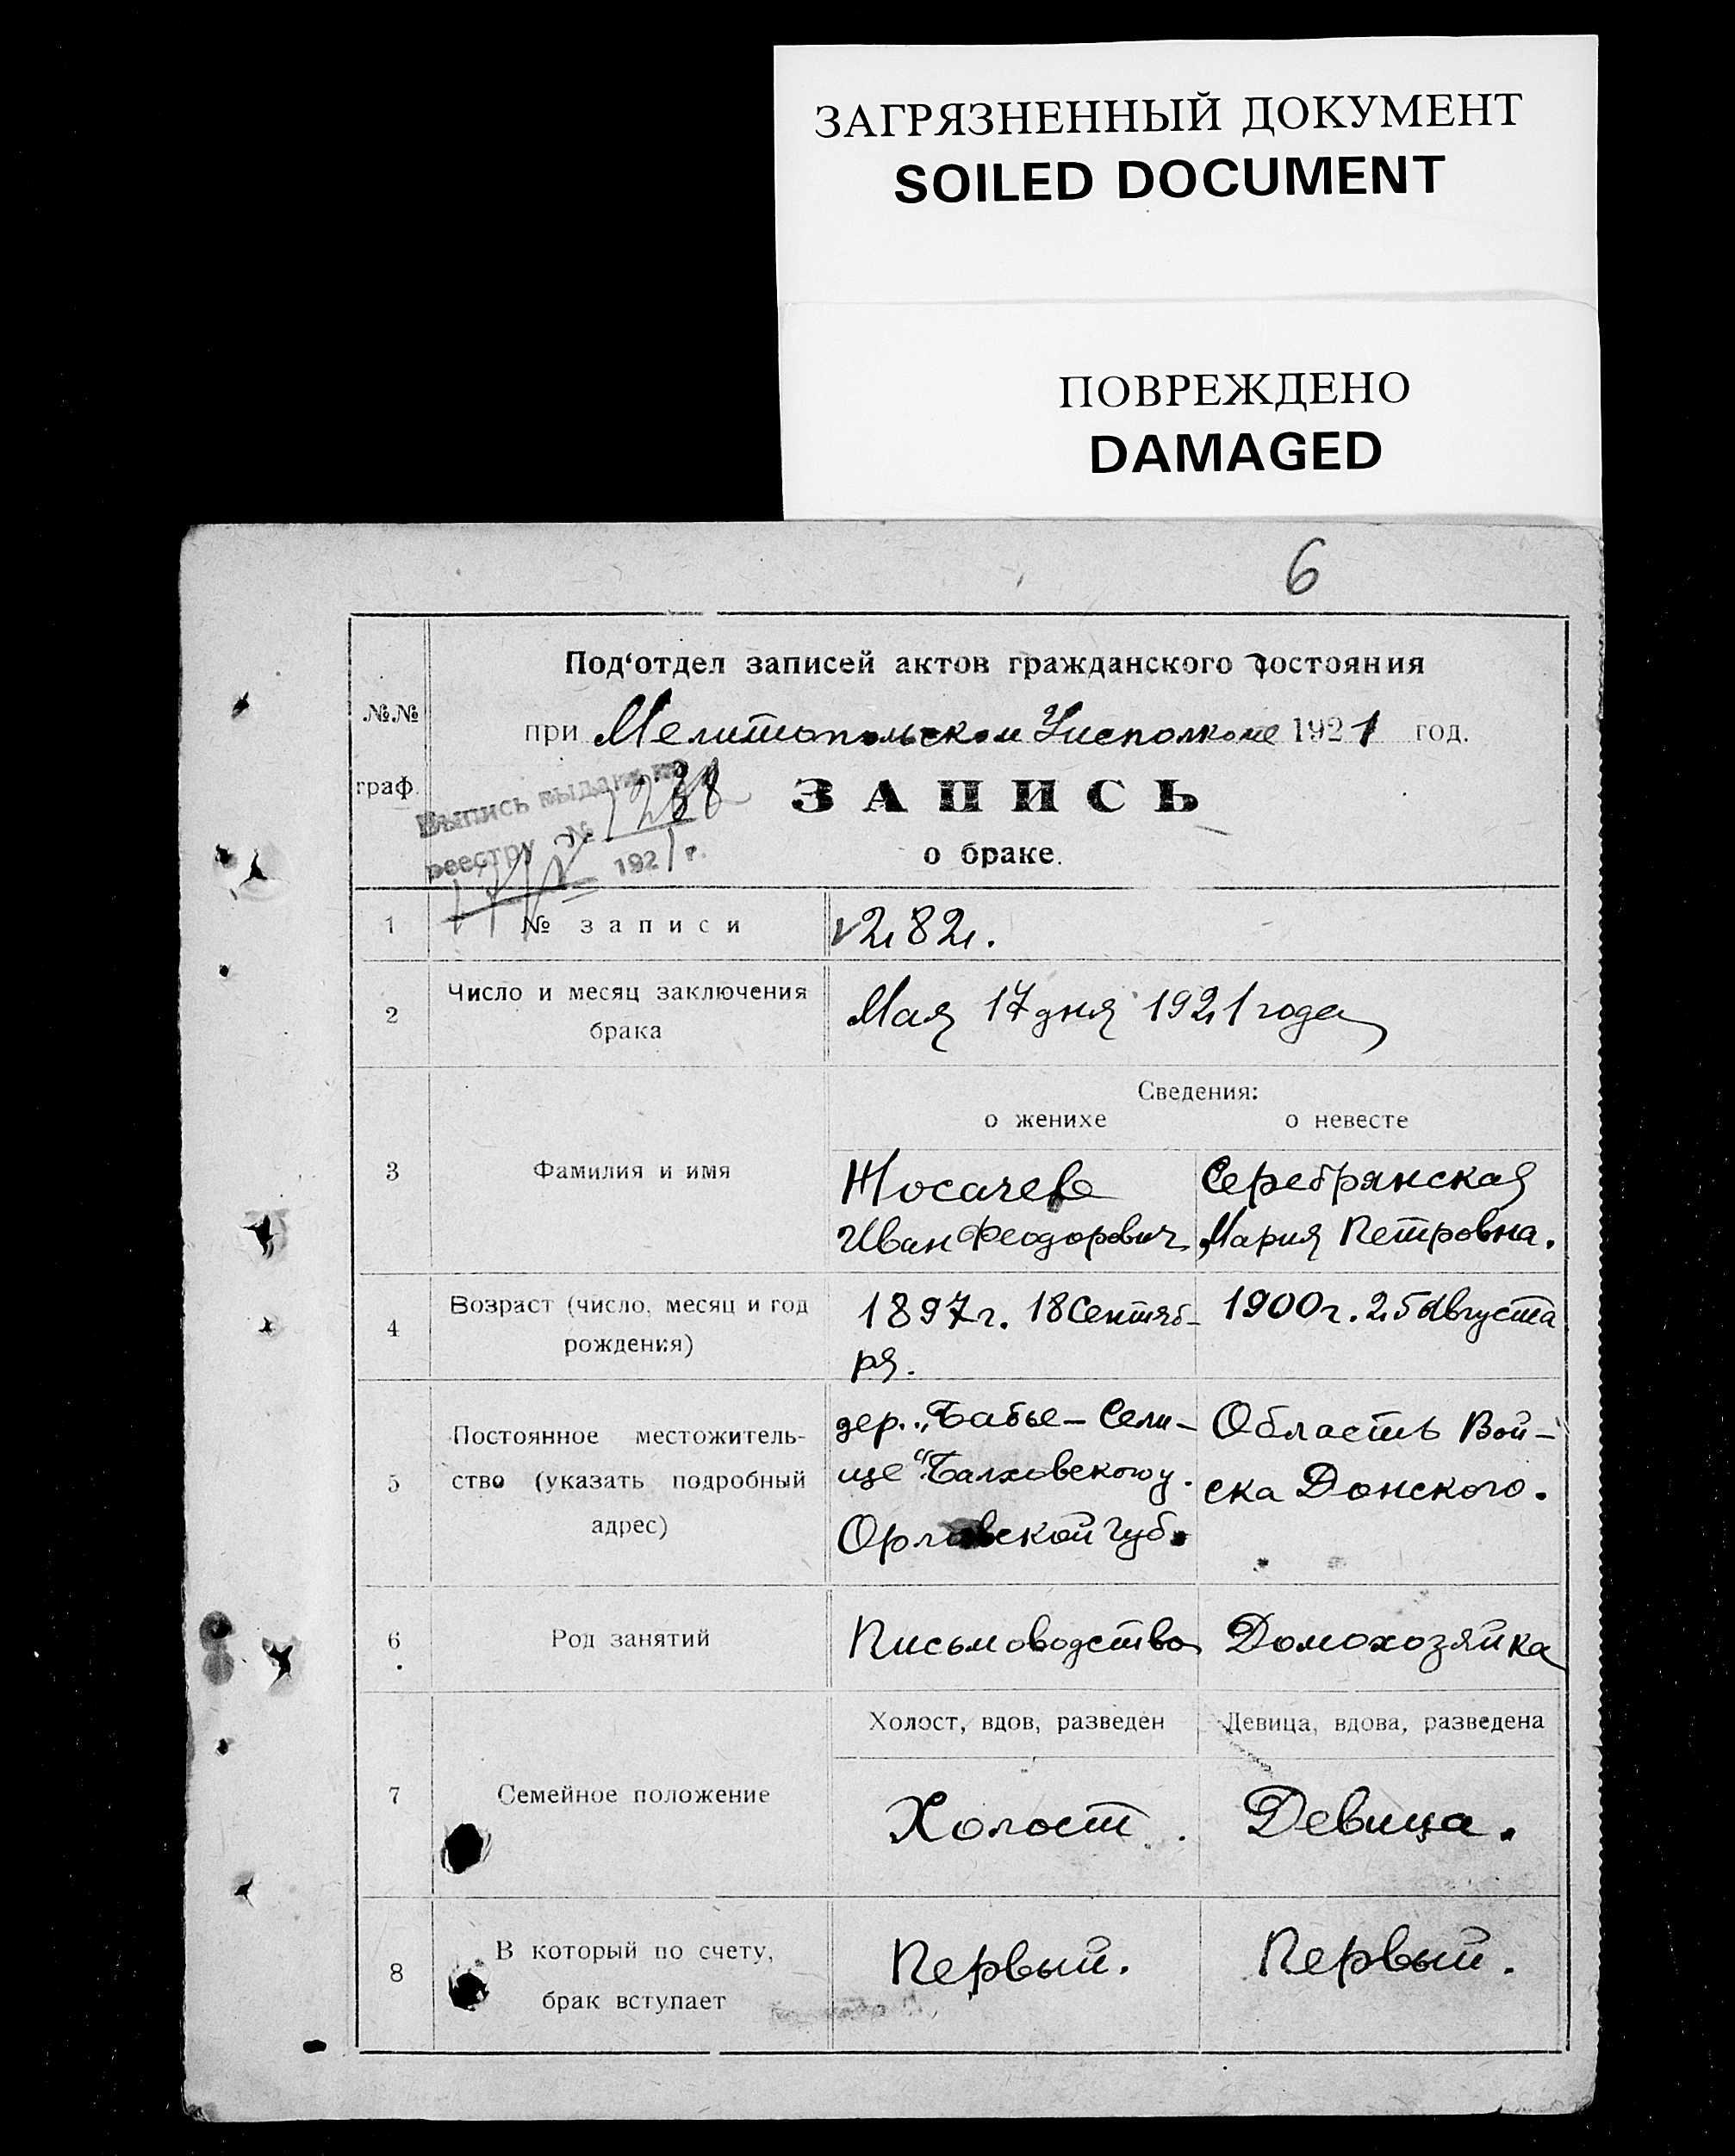 ЗАГРЯЗНЕННЫЙ ДОКУМЕНТ
SOILED DOCUMENT
ПОВРЕЖДЕНО
DAMAGED
6
Под‘отдел записей актов гражданского состояния
№№
граф.
при Мелитопольском Уисполкоме 1921 год.
Выпись выдана по
реестру № 1238
1921 г.
ЗАПИСЬ
о браке.
1
№ записи
282.
2
Число и месяц заключения
брака
Мая 17 дня 1921 года
Сведения:
о женихе
о невесте
3
Фамилия и имя
Носачев
Иван Феодорович
Серебрянская
Мария Петровна.
4
Возраст (число, месяц и год
рождения)
1897 г. 18 Сентяб-
ря.
1900 г. 25 Августа
5
Постоянное местожитель-
ство (указать подробный
адрес)
дер. „Бабье-Сели-
ще“ Балховского у.
Орловской губ.
Область Вой-
ска Донского.
6
Род занятий
Письмоводство
Домохозяйка
7
Семейное положение
Холост, вдов, разведен
Девица, вдова, разведена
Холост.
Девица.
8
В который по счету,
брак вступает
Первый.
Первый.